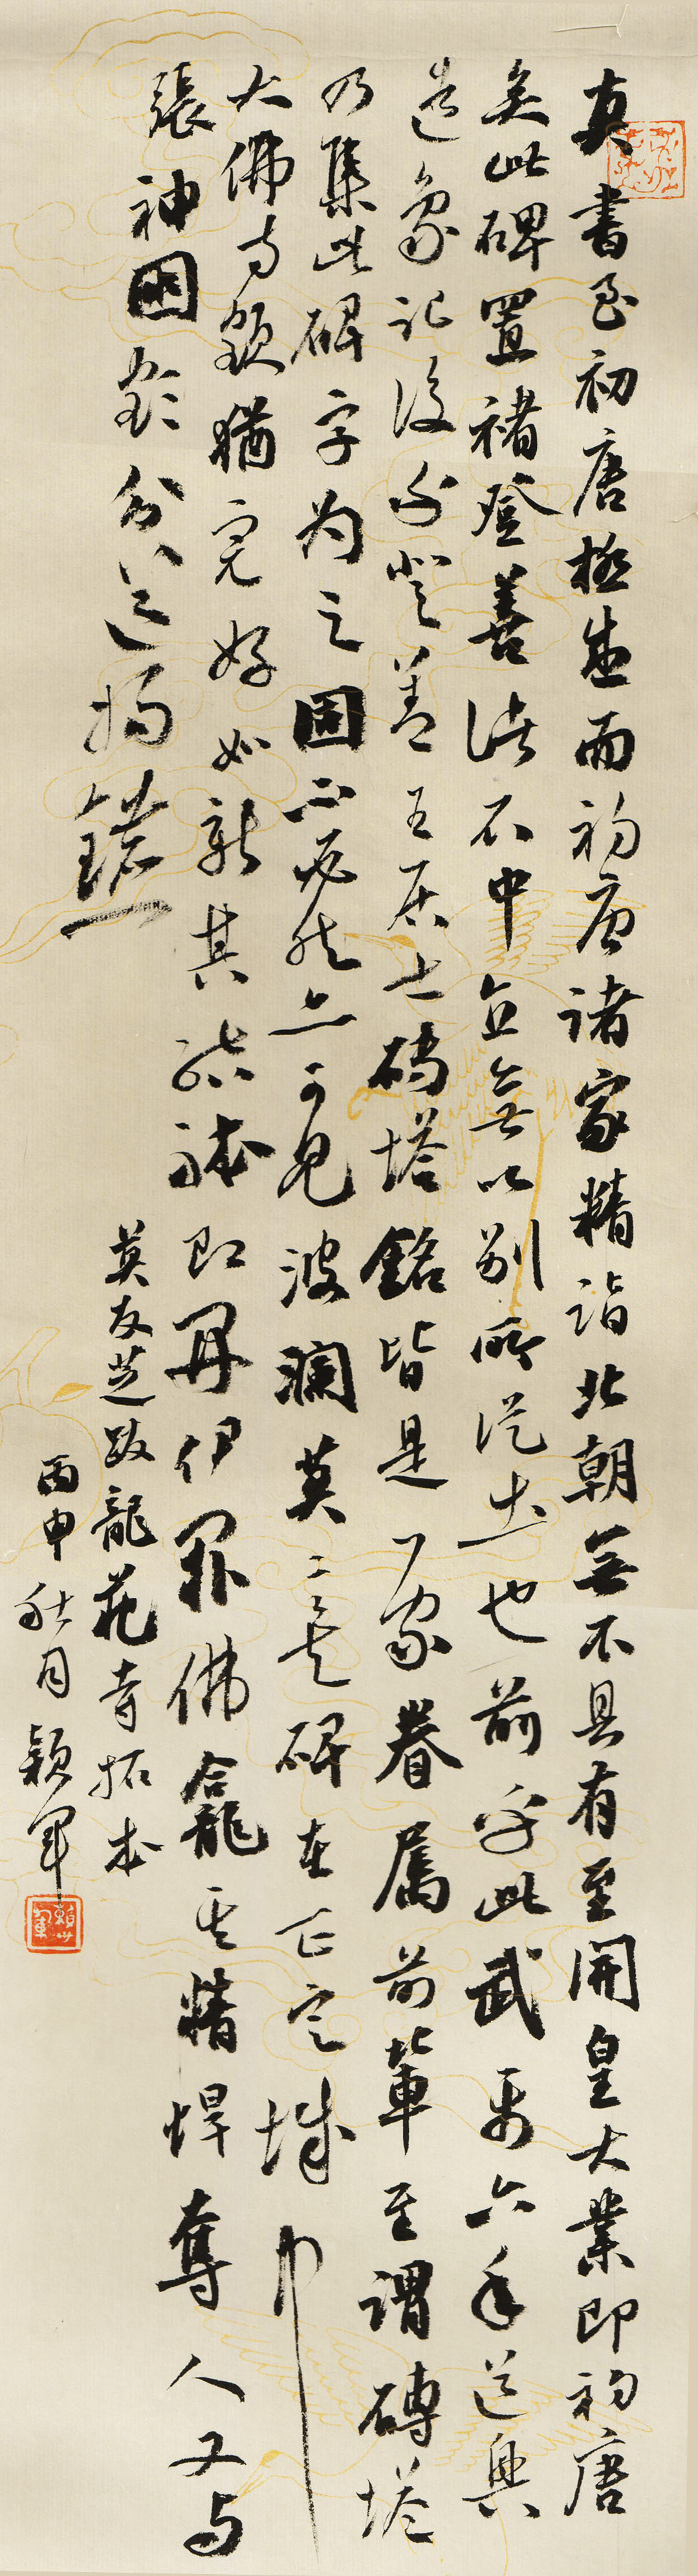 真書至初唐極盛而初唐諸家精詣北朝無不具有至開皇大業即初唐
矣此碑置褚登善諸石中直無以別所從出也前乎此武平六年道興
造象記後於登善王居士磚塔銘皆是一家眷屬前輩至謂磚塔
乃集此碑字為之固不必然亦可見波瀾莫二矣碑在正定城中
大佛寺頗猶完好如新其結體即開伊闕佛龕其精悍奪人又与
張神分道揚鑣
莫友芝跋龍花寺拓本
丙申秋月穎軍